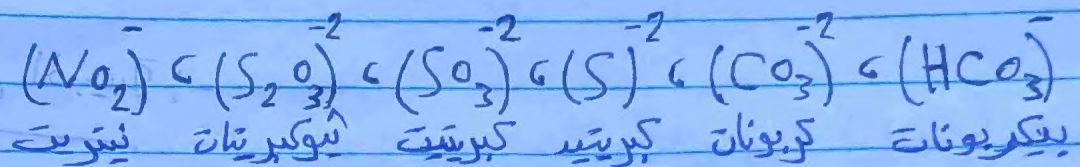 (HCO₃)⁻ ، (CO₃)⁻² ، (S)⁻² ، (SO₃)⁻² ، (S₂O₃)⁻² ، (NO₂)⁻
بيكربونات كربونات كبريتيد كبريتيت ثيوكبريتات نيتريت